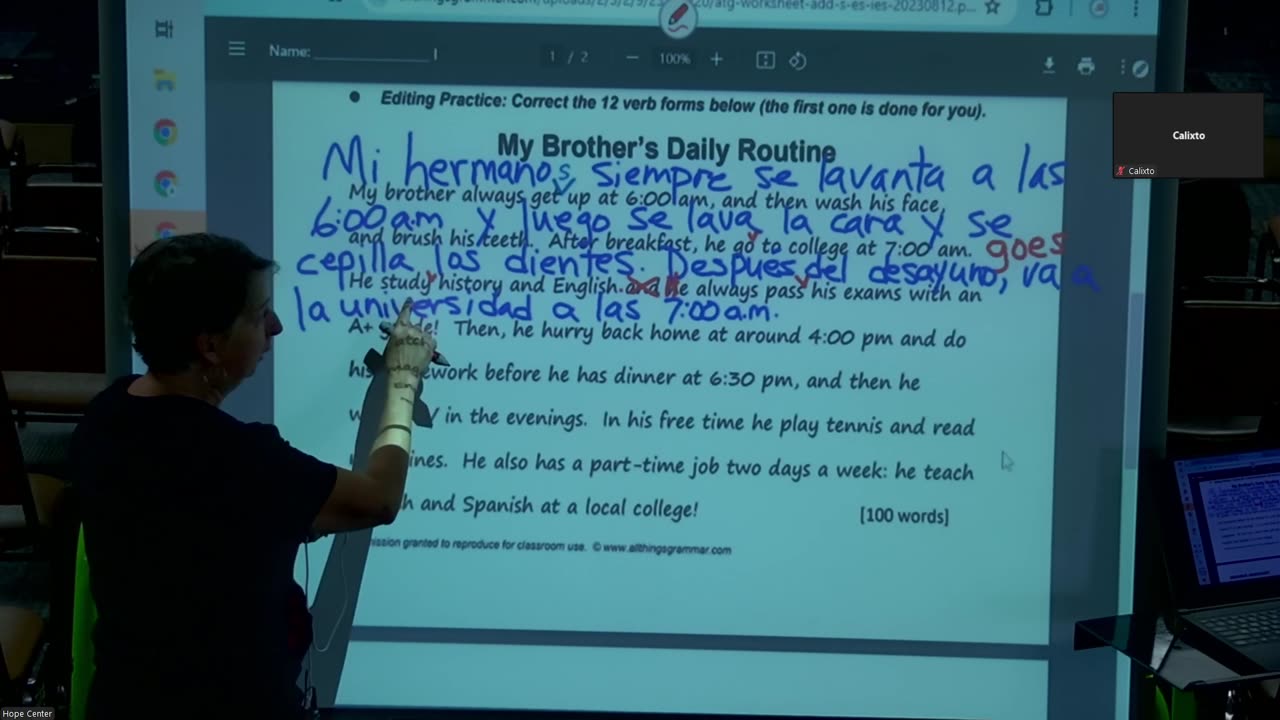 20/atg-worksheet-add-s-es-ies-20230812.p...
Name:
1 / 2
100%
Editing Practice: Correct the 12 verb forms below (the first one is done for you).
My Brother's Daily Routine
Mi hermano siempre se lavanta a las
My brother always get up at 6:00 am, and then wash his face,
6:00 a.m y luego se lava la cara y se
and brush his teeth. After breakfast, he go to college at 7:00 am. goes
cepilla los dientes. Despues del desayuno, va a
He study history and English and He always pass his exams with an
la universidad a las 7:00 a.m.
A+ Then, he hurry back home at around 4:00 pm and do
before he has dinner at 6:30 pm, and then he
in the evenings. In his free time he play tennis and read
He also has a part-time job two days a week: he teach
and Spanish at a local college!
[100 words]
granted to reproduce for classroom use. © www.allthingsgrammar.com
Calixto
Calixto
Hope Center